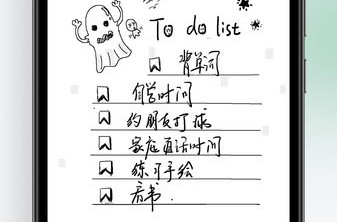 To do list
背单词
自学时间
约朋友打球
家庭通话时间
练习手绘
看书.